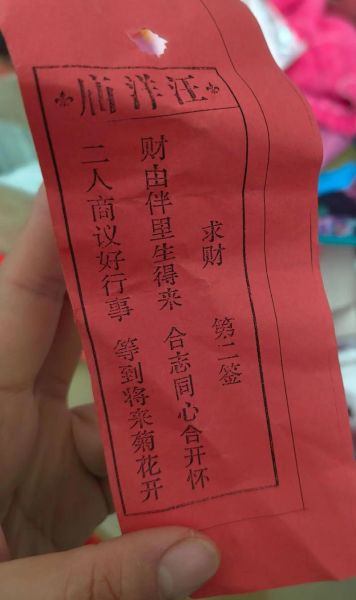 汪洋庙
求财 第二签
财由伴里生得来 合志同心合开怀
二人商议好行事 等到将来菊花开